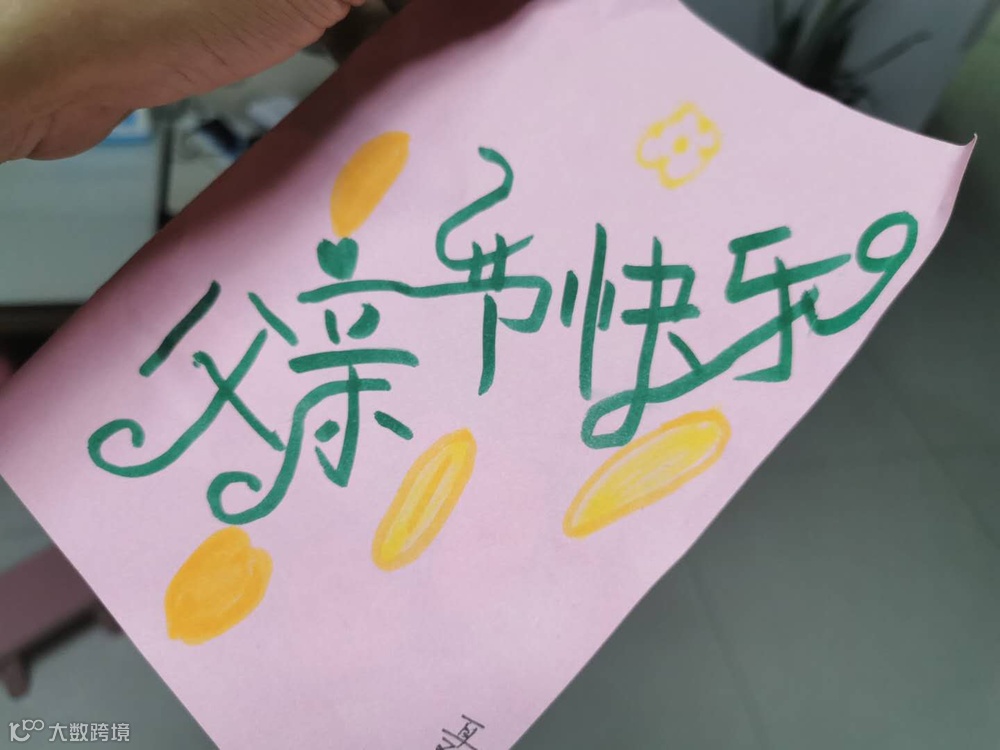 父亲节快乐
大数跨境